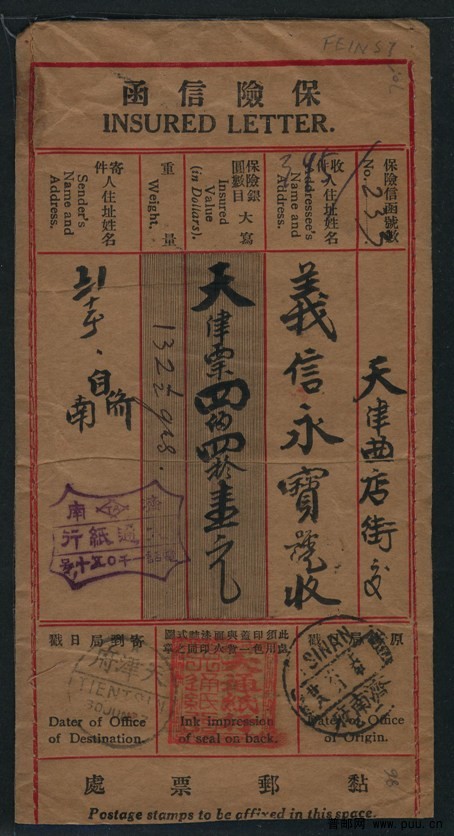 FEINST
函信險保
INSURED LETTER.
保險信函號數
No. 233
收件人住址姓名
Addressee's
Name and
Address.
保險銀圓數目 大寫
Insured
Value
(in Dollars).
重量
Weight.
寄件人住址姓名
Sender's
Name and
Address.
天津曲店街交
義信永寶號收
天津票四佰四拾壹元
132½ grs.
南
濟南
大通紙行
SINAN
濟南
天津府
TIENTSIN
30 JUN
大通紙
原寄局日戳
Dater of Office
of Origin.
此處須印蓋與函後
Ink impression
of seal on back.
寄到局日戳
Dater of Office
of Destination.
處票郵黏
Postage stamps to be affixed in this space.
96
普邮网 www.puu.cn